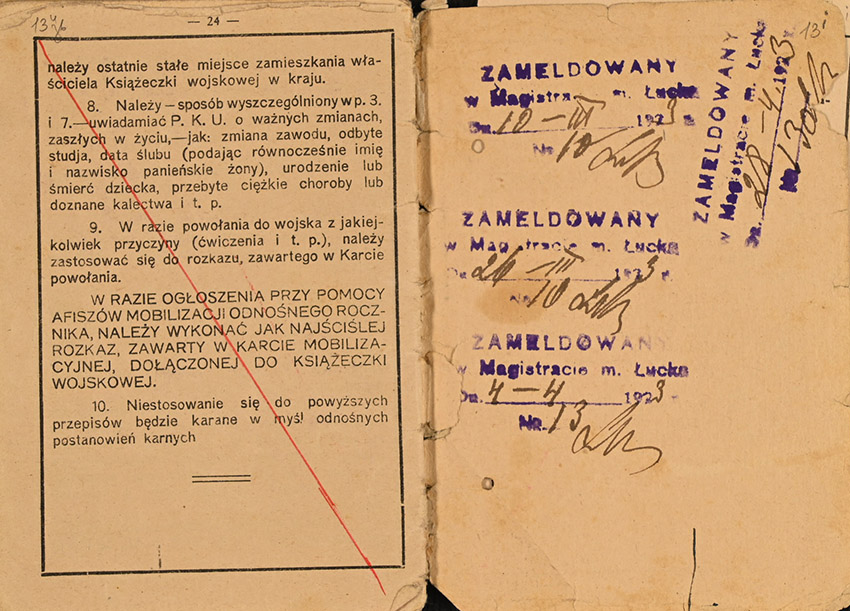 — 24 —
należy ostatnie stałe miejsce zamieszkania wła-
ściciela Książeczki wojskowej w kraju.
8. Należy — sposób wyszczególniony w p. 3.
i 7.—uwiadamiać P. K. U. o ważnych zmianach,
zaszłych w życiu,—jak: zmiana zawodu, odbyte
studja, data ślubu (podając równocześnie imię
i nazwisko panieńskie żony), urodzenie lub
śmierć dziecka, przebyte ciężkie choroby lub
doznane kalectwa i t. p.
9. W razie powołania do wojska z jakiej-
kolwiek przyczyny (ćwiczenia i t. p.), należy
zastosować się do rozkazu, zawartego w Karcie
powołania.
W RAZIE OGŁOSZENIA PRZY POMOCY
AFISZÓW MOBILIZACJI ODNOŚNEGO ROCZ-
NIKA, NALEŻY WYKONAĆ JAK NAJŚCIŚLEJ
ROZKAZ, ZAWARTY W KARCIE MOBILIZA-
CYJNEJ, DOŁĄCZONEJ DO KSIĄŻECZKI
WOJSKOWEJ.
10. Niestosowanie się do powyższych
przepisów będzie karane w myśl odnośnych
postanowień karnych
ZAMELDOWANY
w Magistracie m. Łucka
Dn. 10 — III 1923 r.
No 10
ZAMELDOWANY
w Magistracie m. Łucka
Dn. 26 — III 1923 r.
No 10
ZAMELDOWANY
w Magistracie m. Łucka
Dn. 4 — 4 1923 r.
No 13
ZAMELDOWANY
w Magistracie m. Łucka
Dn. 28 — 4 1923 r.
No